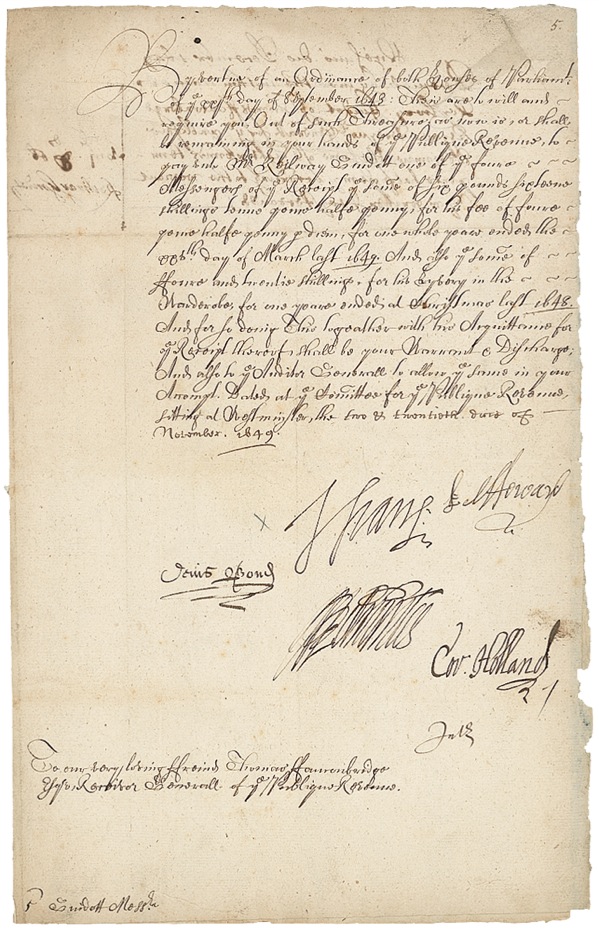 5.
By vertue of an Ordinance of both Houses of Parliamt.
of ye xxjth day of September 1643: Theis are to will and
require you, Out of such Threasure, as now is, or shall
remaine in your hands of ye Publique Revenue, to
pay unto Mr Gudott one of ye foure
Messengers of ye Receipt ye some of six pounds sixteene
shillings penny halfe penny, for his fee of foure
pence halfe penny p diem, for one whole yeare ended the
xxvth day of March last 1649. And also ye some of
ffoure and twentie shillings, for his Lyvery in the
Wardrobe, for one yeare ended at Christmas last 1648.
And for so doeing This togeather with his Acquittance for
ye Receipt thereof, shall be your Warrant & Discharge;
And also to ye Auditor Generall to allow ye same in your
Accompt. Dated at ye Comittee for ye Publique Revenue,
sitting at Westminster, the two & twentieth daie of
November. 1649.
E Howard
Denis Bond
Cor. Holland
To our very loving ffreind Thomas ffauconbridge
Esqr. Receivor Generall of ye Publique Revenue.
Gudott Messr